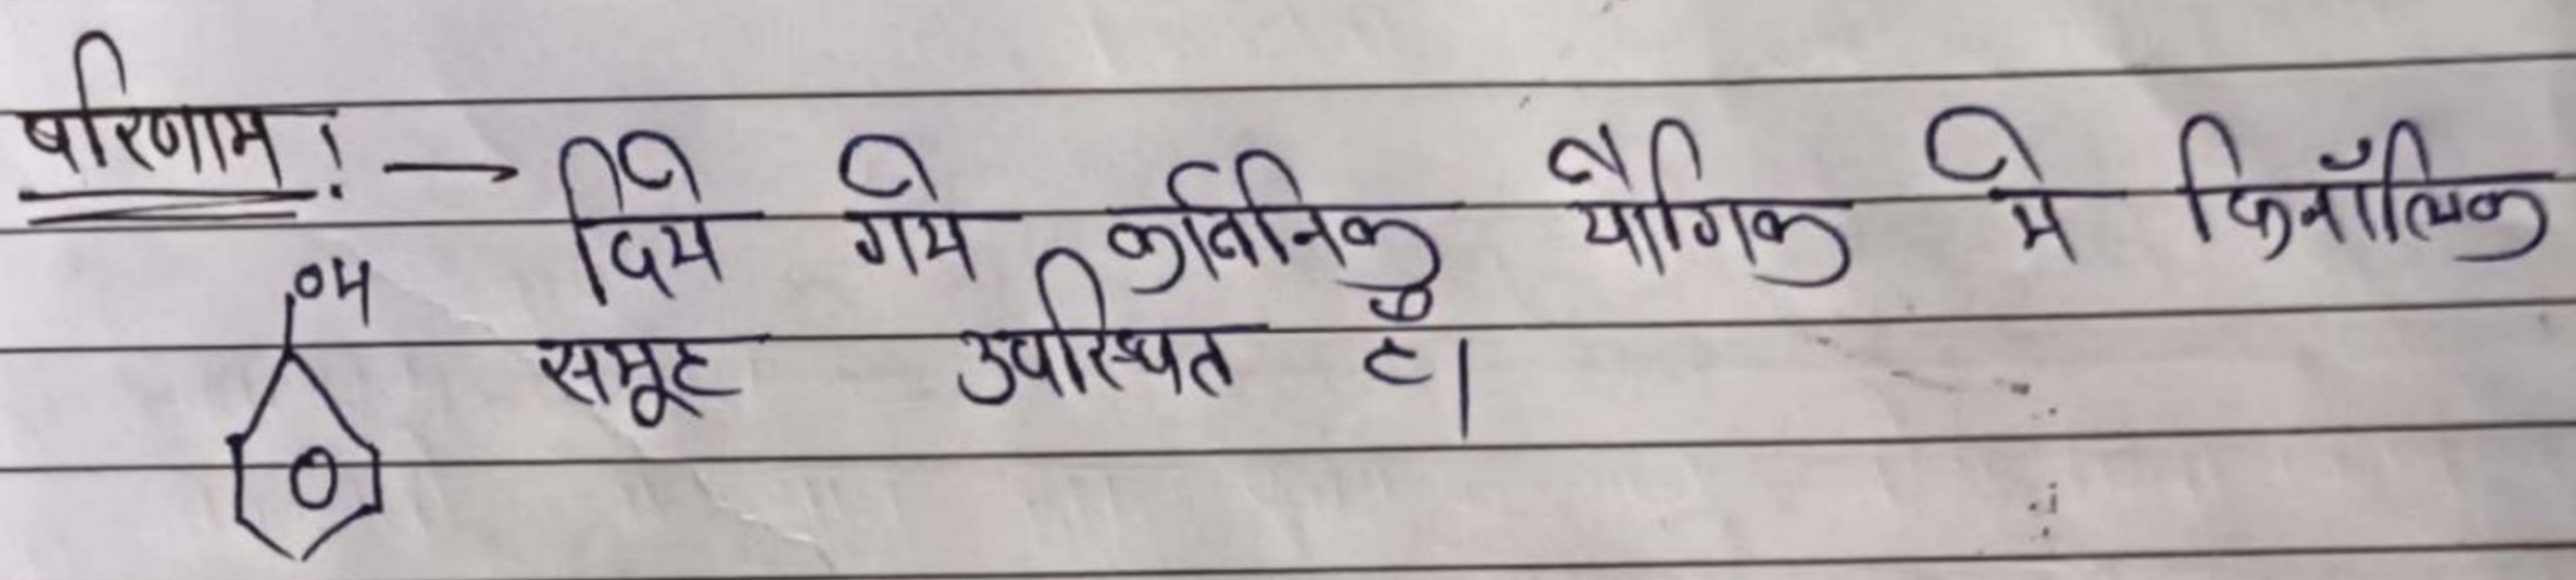 परिणाम :→ दिये गये कार्बनिक यौगिक मे फिनॉलिक
OH
समूह उपस्थित है।